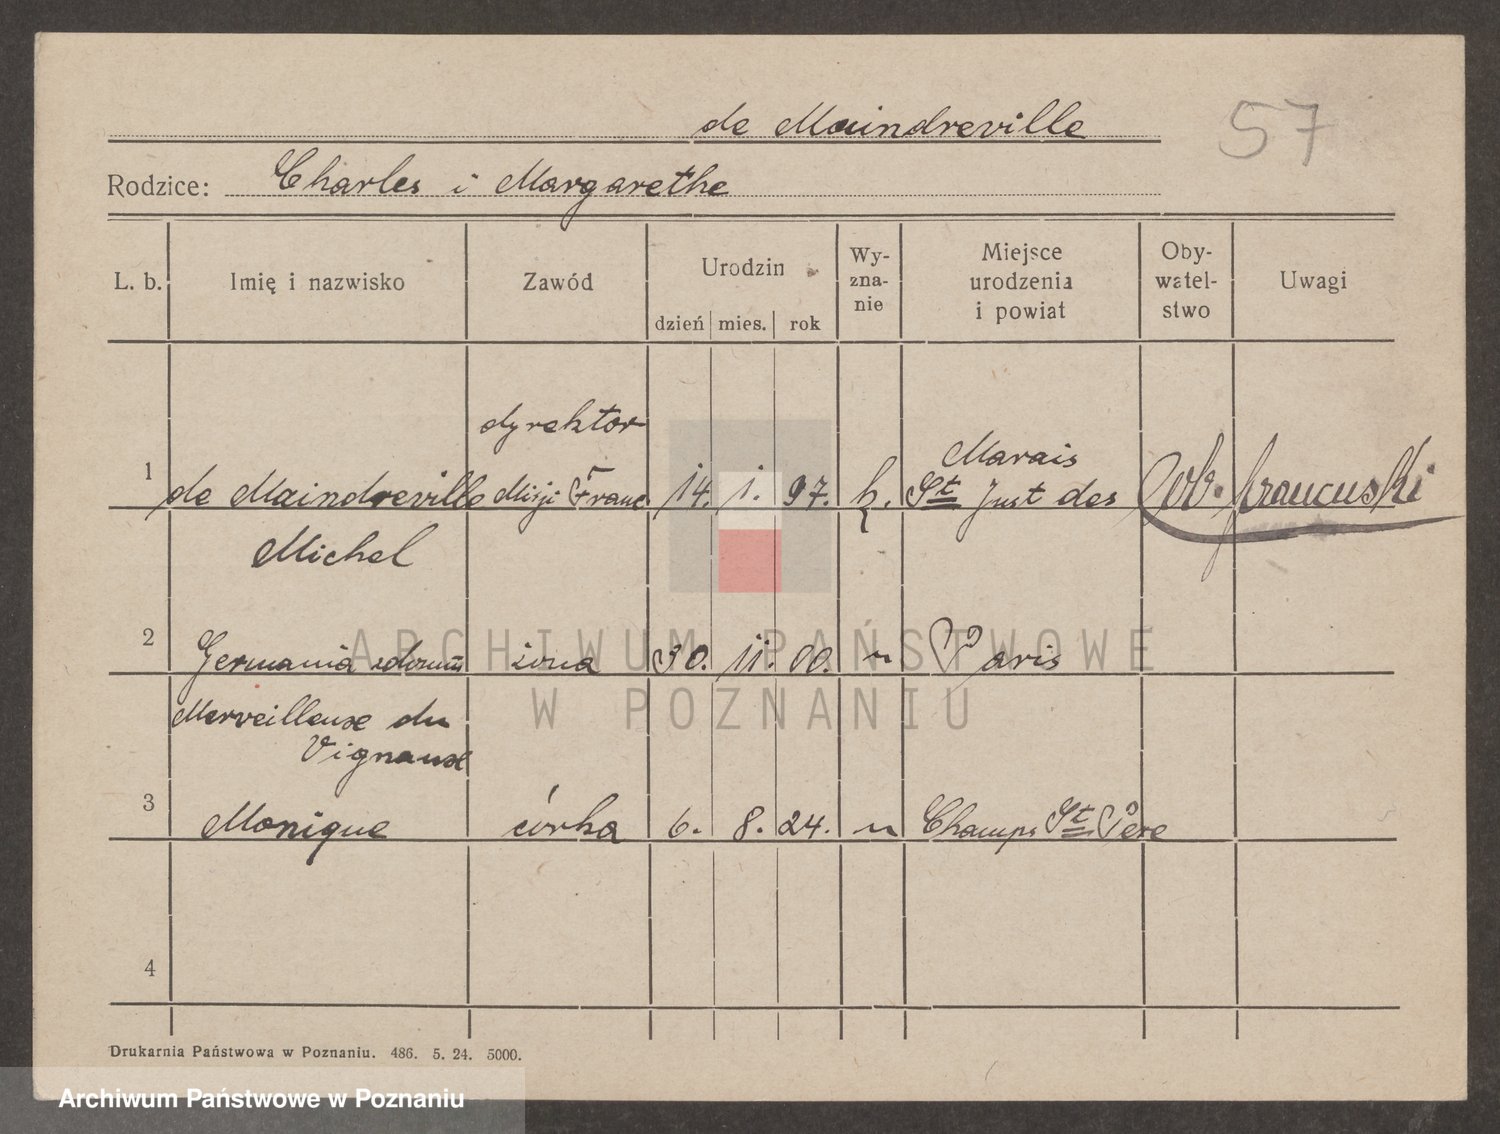 de Maindreville
57
Rodzice: Charles i Margarethe
L. b. Imię i nazwisko Zawód Urodzin dzień mies. rok Wy-zna-nie Miejsce urodzenia i powiat Oby-watel-stwo Uwagi
dyrektor Marais
1 de Maindreville Misji Franc. 14. 1. 97. k. St Just des Ob. francuski
Michel
2 Germania żona 30. 11. 00. " Paris
Merveilleuse du
Vignaux
3 Monique córka 6. 8. 24. " Champs St Père
4
ARCHIWUM PAŃSTWOWE
W POZNANIU
Drukarnia Państwowa w Poznaniu. 486. 5. 24. 5000.
Archiwum Państwowe w Poznaniu